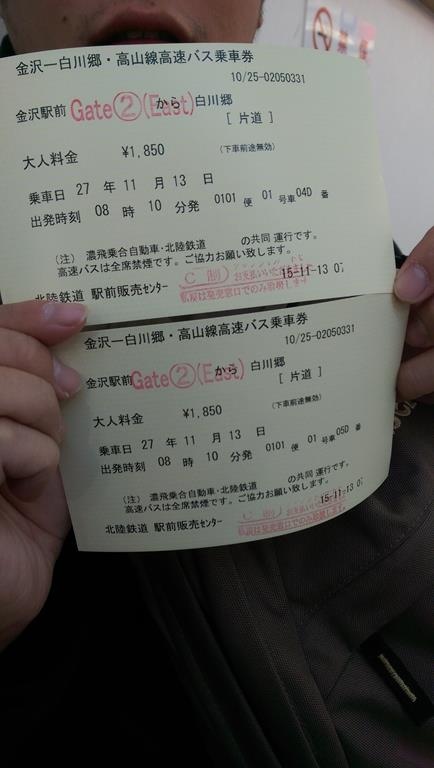 金沢ー白川郷・高山線高速バス乗車券
10/25-02050331
金沢駅前 Gate②(East) から 白川郷
[ 片道 ]
大人料金 ¥1,850 (下車前途無効)
乗車日 27 年 11 月 13 日
出発時刻 08 時 10 分発 0101 便 01 号車 04D 番
(注) 濃飛乗合自動車・北陸鉄道 の共同 運行です。
高速バスは全席禁煙です。ご協力お願い致します。
北陸鉄道 駅前販売センター 15-11-13
金沢ー白川郷・高山線高速バス乗車券
10/25-02050331
金沢駅前 Gate②(East) から 白川郷
[ 片道 ]
大人料金 ¥1,850 (下車前途無効)
乗車日 27 年 11 月 13 日
出発時刻 08 時 10 分発 0101 便 01 号車 05D 番
(注) 濃飛乗合自動車・北陸鉄道 の共同 運行です。
高速バスは全席禁煙です。ご協力お願い致します。
北陸鉄道 駅前販売センター 15-11-13